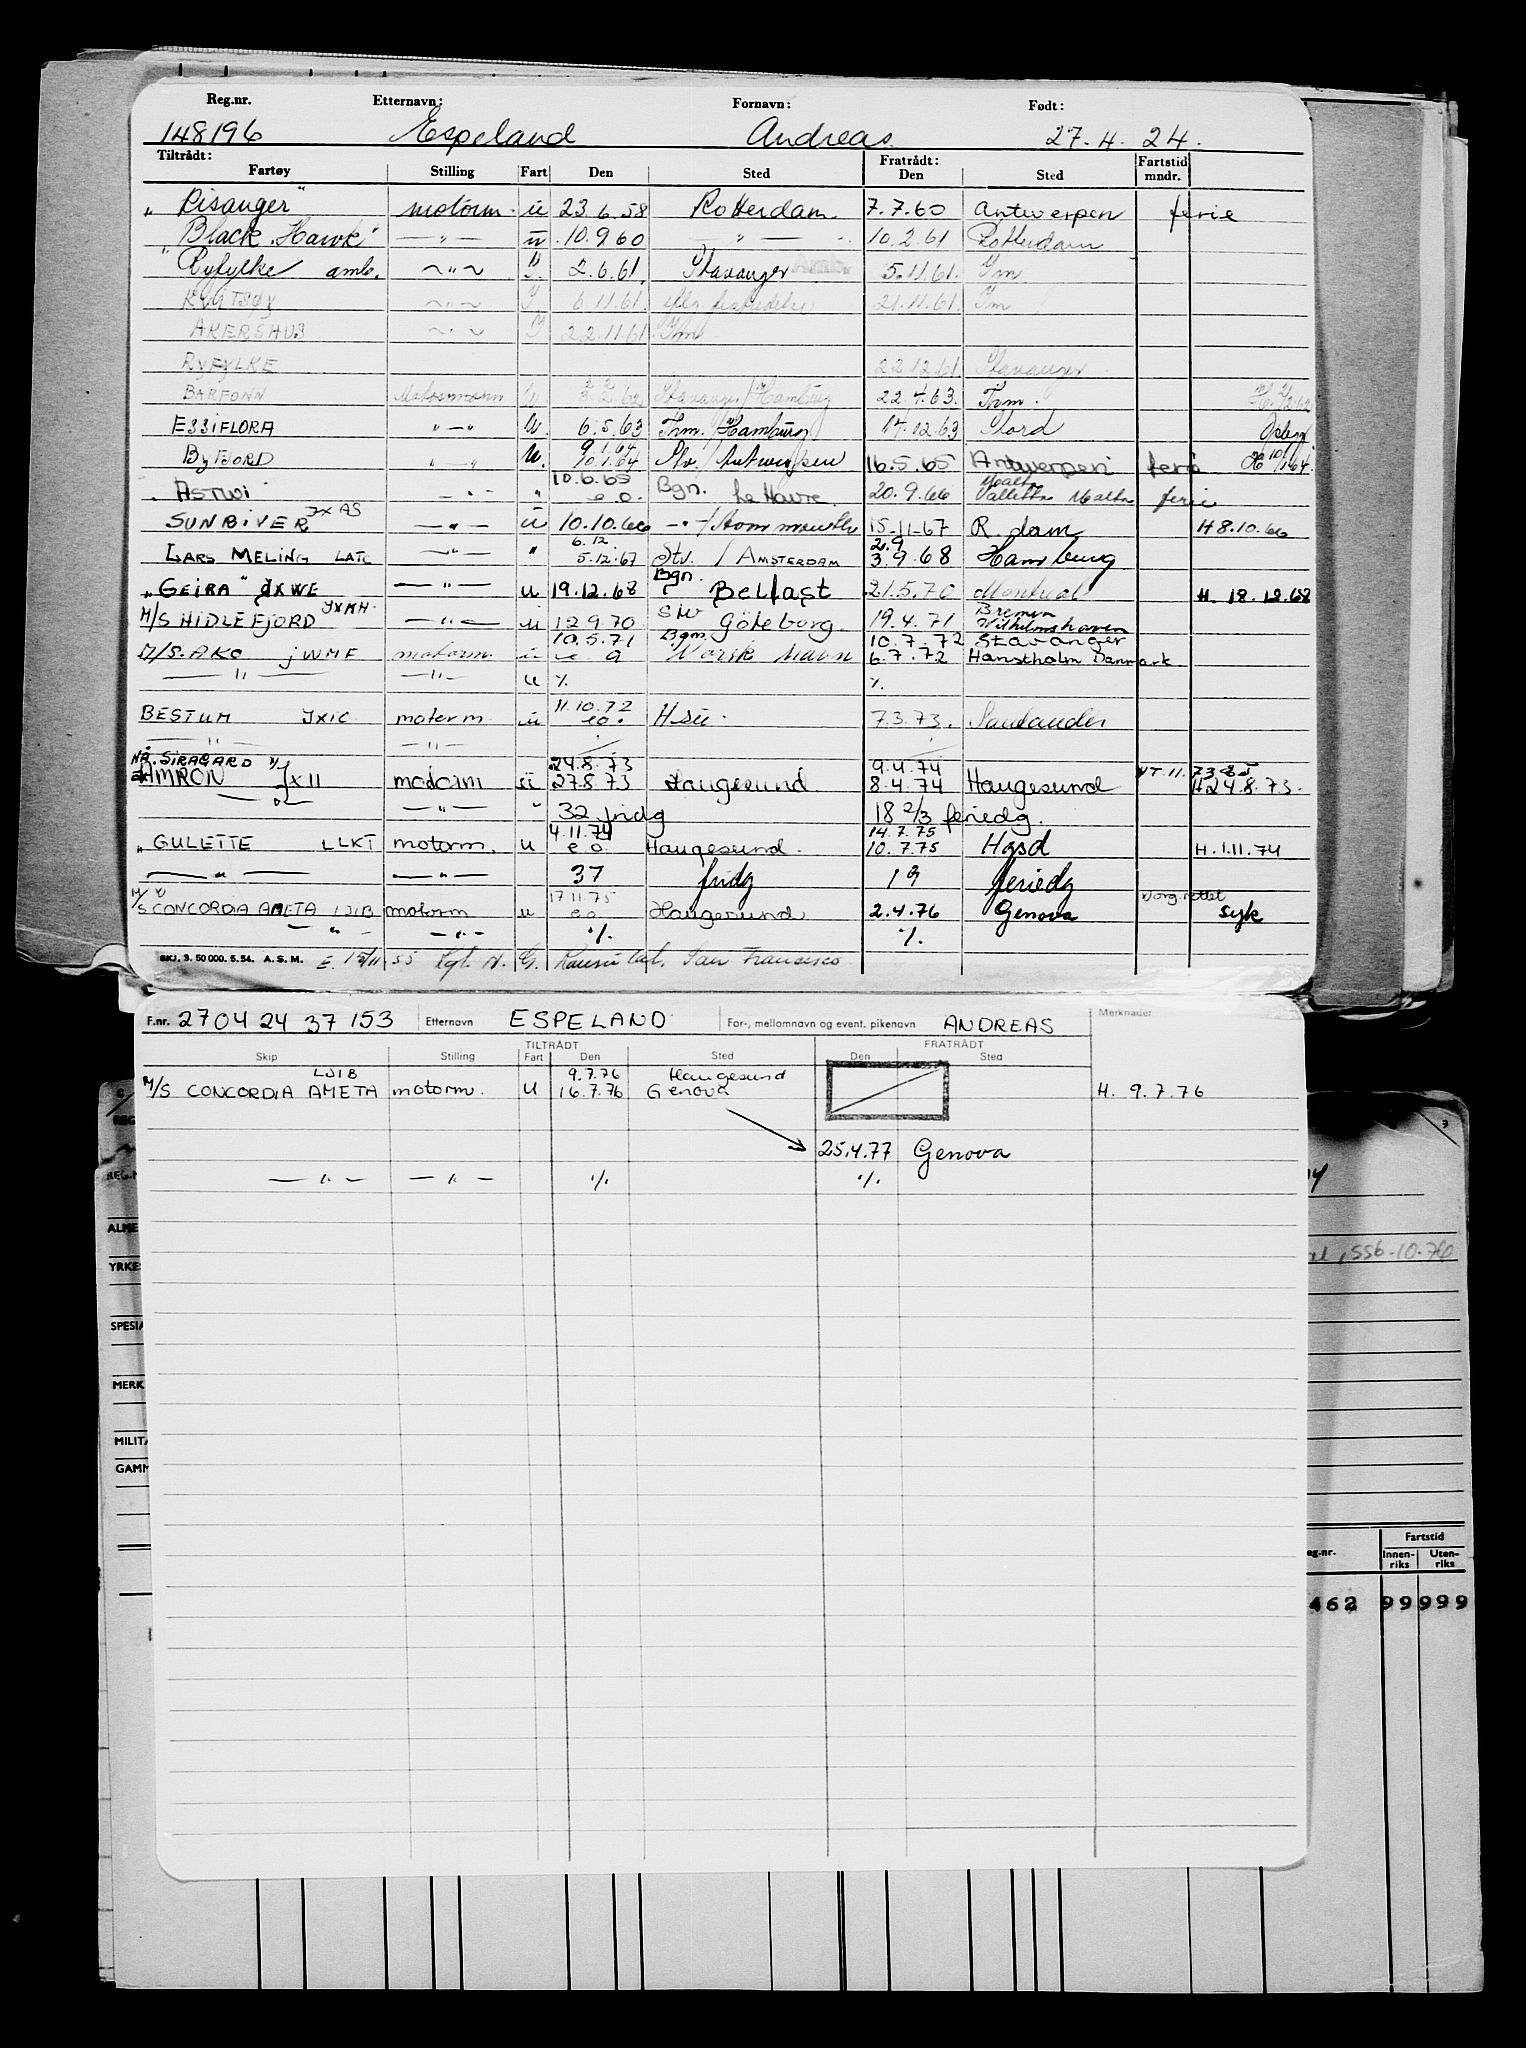 Reg.nr. Etternavn: Fornavn: Født:
148196 Espeland Andreas 27.4.24.
Tiltrådt: Fratrådt: Fartstid
Fartøy Stilling Fart Den Sted Den Sted mndr.
„Risanger" motorm. ü 23.6.58 Rotterdam. 7.7.60 Antwerpen ferie
"Black Hawk" —"— ü 10.9.60 —"— 10.2.61 Rotterdam
"Ryfylke amb. ~"~ I. 2.6.61. Stavanger 5.11.61. Im
~"~ 6.11.61. 21.11.61. Im
AKERSHUS ~"~ 22.11.61.
RYFYLKE 22.12.61 Stavanger
BARFONN Motormann u. 2.2.62 Stavanger/Hamburg 22.4.63. Thm.
ESSIFLORA "—" u. 6.5.63 Thm./Hamburg 17.12.63 Stord
ByFJORD "—" u. 9.1.64 10.1.64 Stv./Antwerpen 16.5.65 Antwerpen ferie
ASTWI —"— " 10.6.65 e.o. Bgn. Le Havre 20.9.66 Malta Valletta Malta ferie
SUNRIVER JXAS —"— ü 10.10.66 15-11-67 R dam H 8.10.66
LARS MELING LATC —"— " 6.12 5.12.67 Stv. / AMSTERDAM 2.9 3.9.68 Hamburg
„GEIRA" JXWE —"— u 19.12.68 Bgn. Belfast 21.5.70 Montreal H. 18.12.68
M/S HIDLEFJORD JXKH. —"— ü 12.9.70 Stv Göteborg 19.4.71 Bremen Wilhelmshaven
M/S. AKO jWMF motorm. ü 10.5.71 e a Bgn. Norsk Havn 10.7.72 Stavanger 6.7.72 Hanstholm Danmark.
—"— —"— u ٪ ٪
BESTUM JXIC motorm ü 11.10.72 e.o. Hsu. 7.3.73. Santander
—"— —"—
NÅ. SIRAGARD
AMRON JXII motorm ü 24.8.73 27.8.73 Haugesund 9.4.74 8.4.74 Haugesund H 24.8.73.
—"— —"— " 32 fridg 18 2/3 feriedg.
„GULETTE LLKT motorm. u 4.11.74 e.o. Haugesund. 14.7.75 10.7.75 Hgsd H. 1.11.74
—"— —"— 37 fridg 19 feriedg
M/S CONCORDIA AMETA LJIB motorm u 17.11.75 e.o. Haugesund 2.4.76 Genova syk
—"— —"— ٪ ٪
SKJ. 3. 50 000. 5.54. A.S.M. E. 15/11.55 Kgl. N. G. Konsulat. San Francisco
F.nr. 27 04 24 37 153 Etternavn ESPELAND For-, mellomnavn og event. pikenavn ANDREAS Merknader
TILTRÅDT FRATRÅDT
Skip Stilling Fart Den Sted Den Sted
M/S CONCORDIA AMETA LJIB motorm. u 9.7.76 16.7.76 Haugesund Genova H. 9.7.76
25.4.77 Genova
—"— —"— ٪ ٪
REG.N
ALME
YRKES
SPESIA
MERK
MILITÆ
GAMM
, 556-10.76
Fartstid
eg.nr. Innen-riks Uten-riks
462 99 999